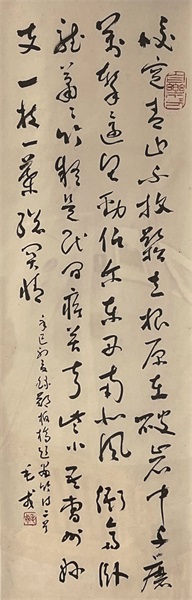 咬定青山不放鬆立根原在破岩中千磨
萬擊還堅勁任尔東西南北風衙齋卧
聽蕭蕭竹疑是民間疾苦聲些小吾曹州縣
吏一枝一葉總關情
辛巳初夏録鄭板橋題畫竹詩二首